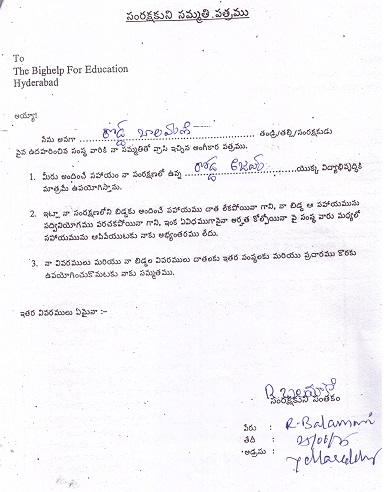 సంరక్షకుని సమ్మతి పత్రము
To
The Bighelp For Education
Hyderabad
అయ్యా:
నేను అనగా రోడ్డ బాలమణి తండ్రి/తల్లి/సంరక్షకుడు
పైన ఉదహరించిన సంస్థ వారికి నా సమ్మతితో వ్రాసి ఇచ్చిన అంగీకార పత్రము.
1. మీరు అందించే సహాయం నా సంరక్షణలో ఉన్న రోడ్డ యొక్క విద్యాభివృద్ధికి
మాత్రమే ఉపయోగిస్తాను.
2. ఇట్లా నా సంరక్షణలోని బిడ్డకు అందించే సహాయము దాత లేకపోయినా గాని, నా బిడ్డ ఆ సహాయమును
సద్వినియోగము పరచకపోయినా గాని, ఇంక ఏవిధముగానైనా అర్హత కోల్పోయినా పై సంస్థ వారు మధ్యలో
సహాయమును ఆపివేయుటకు నాకు అభ్యంతరము లేదు.
3. నా వివరములు మరియు నా బిడ్డల వివరములు దాతలకు ఇతర సంస్థలకు మరియు ప్రచారము కొరకు
ఉపయోగించుకొనుటకు నాకు సమ్మతము.
ఇతర వివరములు ఏమైనా :-
R బాలమణి
సంరక్షకుని సంతకం
పేరు : R-Balamani
తేది :
అడ్రసు :